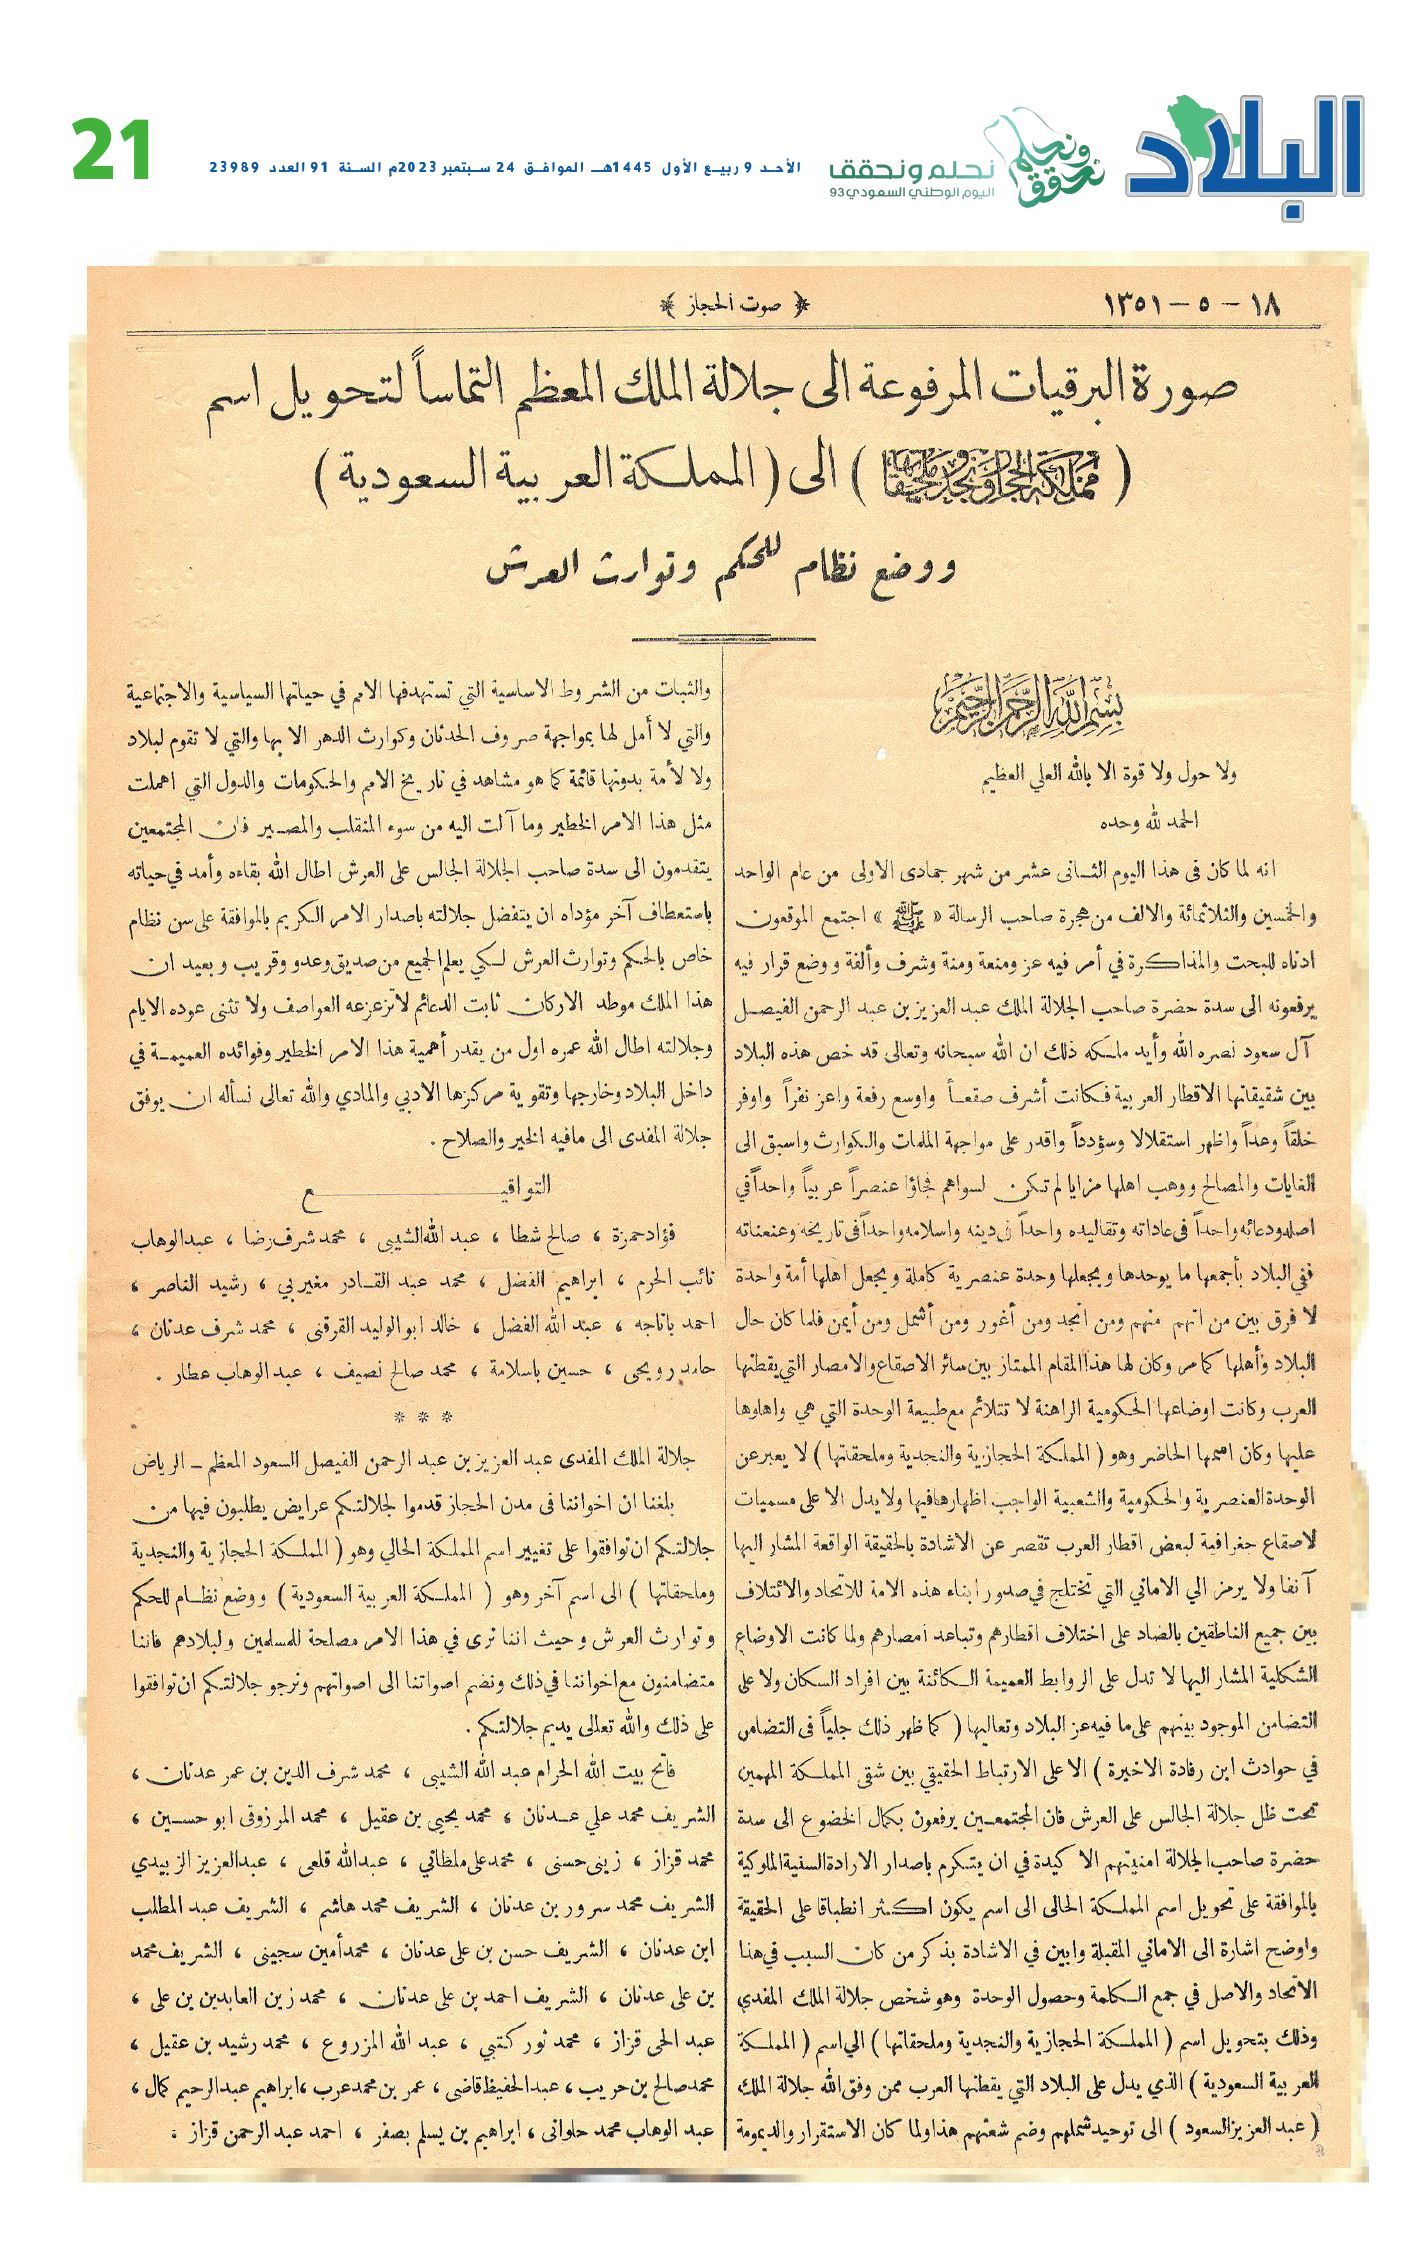 البلاد
نحلم ونحقق
نحلم ونحقق
اليوم الوطني السعودي 93
الأحد 9 ربيع الأول 1445هـ الموافق 24 سبتمبر 2023م السنة 91 العدد 23989
21
١٨ – ٥ – ١٣٥١
﴿ صوت الحجاز ﴾
صورة البرقيات المرفوعة الى جلالة الملك المعظم التماساً لتحويل اسم
( مملكة الحجاز ونجد وملحقاتها ) الى ( المملكة العربية السعودية )
ووضع نظام للحكم وتوارث العرش
بسم الله الرحمن الرحيم
ولا حول ولا قوة الا بالله العلي العظيم
الحمد لله وحده
انه لما كان فى هذا اليوم الثانى عشر من شهر جمادى الاولى من عام الواحد
والخمسين والثلاثمائة والالف من هجرة صاحب الرسالة « ﷺ » اجتمع الموقعون
ادناه للبحث والمذاكرة في أمر فيه عز ومنعة ومنة وشرف وألفة ووضع قرار فيه
يرفعونه الى سدة حضرة صاحب الجلالة الملك عبد العزيز بن عبد الرحمن الفيصل
آل سعود نصره الله وأيد ملكه ذلك ان الله سبحانه وتعالى قد خص هذه البلاد
بين شقيقاتها الاقطار العربية فكانت أشرف صقعاً واوسع رفعة واعز نفراً واوفر
خلقاً وعداً واظهر استقلالا وسؤدداً واقدر على مواجهة الملمات والكوارث واسبق الى
الغايات والمصالح ووهب اهلها مزايا لم تكن لسواهم فجاؤا عنصراً عربياً واحداً في
اصله ودعائه واحداً فى عاداته وتقاليده واحداً فى دينه واسلامه واحداً فى تاريخه وعنعناته
ففي البلاد بأجمعها ما يوحدها ويجعلها وحدة عنصرية كاملة ويجعل اهلها أمة واحدة
لا فرق بين من اتهم منهم ومن انجد ومن أغور ومن أشمل ومن أيمن فلما كان حال
البلاد وأهلها كما مر وكان لها هذا المقام الممتاز بين سائر الاصقاع والامصار التي يقطنها
العرب وكانت اوضاعها الحكومية الراهنة لا تتلائم مع طبيعة الوحدة التي هي واهلوها
عليها وكان اسمها الحاضر وهو ( المملكة الحجازية والنجدية وملحقاتها ) لا يعبر عن
الوحدة العنصرية والحكومية والشعبية الواجب اظهارها فيها ولا يدل الا على مسميات
لاصقاع جغرافية لبعض اقطار العرب تقصر عن الاشادة بالحقيقة الواقعة المشار اليها
آنفا ولا يرمز الي الاماني التي تختلج في صدور ابناء هذه الامة للاتحاد والائتلاف
بين جميع الناطقين بالضاد على اختلاف اقطارهم وتباعد امصارهم ولما كانت الاوضاع
الشكلية المشار اليها لا تدل على الروابط العميمة الكائنة بين افراد السكان ولا على
التضامن الموجود بينهم على ما فيه عز البلاد وتعاليها ( كما ظهر ذلك جلياً فى التضامن
في حوادث ابن رفادة الاخيرة ) الا على الارتباط الحقيقي بين شقى المملكة المهمين
تحت ظل جلالة الجالس على العرش فان المجتمعين يرفعون بكمال الخضوع الى سدة
حضرة صاحب الجلالة امنيتهم الاكيدة في ان يتكرم باصدار الارادة السنية الملوكية
بالموافقة على تحويل اسم المملكة الحالى الى اسم يكون اكثر انطباقا على الحقيقة
واوضح اشارة الى الاماني المقبلة وابين في الاشادة بذكر من كان السبب في هذا
الاتحاد والاصل في جمع الكلمة وحصول الوحدة وهو شخص جلالة الملك المفدي
وذلك بتحويل اسم ( المملكة الحجازية والنجدية وملحقاتها ) الي اسم ( المملكة
العربية السعودية ) الذي يدل على البلاد التي يقطنها العرب ممن وفق الله جلالة الملك
( عبد العزيز السعود ) الى توحيد شملهم وضم شعثهم هذا ولما كان الاستقرار والديمومة
والثبات من الشروط الاساسية التي تستهدفها الامم في حياتها السياسية والاجتماعية
والتي لا أمل لها بمواجهة صروف الحدثان وكوارث الدهر الا بها والتي لا تقوم لبلاد
ولا لأمة بدونها قائمة كما هو مشاهد في تاريخ الامم والحكومات والدول التي اهملت
مثل هذا الامر الخطير وما آلت اليه من سوء المنقلب والمصير فان المجتمعين
يتقدمون الى سدة صاحب الجلالة الجالس على العرش اطال الله بقاءه وأمد في حياته
باستعطاف آخر مؤداه ان يتفضل جلالته باصدار الامر الكريم بالموافقة على سن نظام
خاص بالحكم وتوارث العرش لكي يعلم الجميع من صديق وعدو وقريب وبعيد ان
هذا الملك موطد الاركان ثابت الدعائم لا تزعزعه العواصف ولا تثنى عوده الايام
وجلالته اطال الله عمره اول من يقدر أهمية هذا الامر الخطير وفوائده العميمة في
داخل البلاد وخارجها وتقوية مركزها الادبي والمادي والله تعالى نسأله ان يوفق
جلالة المفدى الى ما فيه الخير والصلاح .
التواقيـــــع
فؤاد حمزة ، صالح شطا ، عبد الله الشيبى ، محمد شرف رضا ، عبد الوهاب
نائب الحرم ، ابراهيم الفضل ، محمد عبد القادر مغيربي ، رشيد الناصر ،
احمد باناجه ، عبد الله الفضل ، خالد ابو الوليد القرقنى ، محمد شرف عدنان ،
حامد رويحى ، حسين باسلامة ، محمد صالح نصيف ، عبد الوهاب عطار .
* * *
جلالة الملك المفدى عبد العزيز بن عبد الرحمن الفيصل السعود المعظم – الرياض
بلغنا ان اخواننا فى مدن الحجاز قدموا لجلالتكم عرايض يطلبون فيها من
جلالتكم ان توافقوا على تغيير اسم المملكة الحالي وهو ( المملكة الحجازية والنجدية
وملحقاتها ) الى اسم آخر وهو ( المملكة العربية السعودية ) ووضع نظام للحكم
وتوارث العرش وحيث اننا نرى في هذا الامر مصلحة للمسلمين ولبلادهم فاننا
متضامنون مع اخواننا في ذلك ونضم اصواتنا الى اصواتهم ونرجو جلالتكم ان توافقوا
على ذلك والله تعالى يديم جلالتكم .
فاتح بيت الله الحرام عبد الله الشيبى ، محمد شرف الدين بن عمر عدنان ،
الشريف محمد علي عدنان ، محمد يحيى بن عقيل ، محمد المرزوقى ابو حسين ،
محمد قزاز ، زينى حسنى ، محمد على ملطانى ، عبدالله قلعى ، عبد العزيز الزبيدي
الشريف محمد سرور بن عدنان ، الشريف محمد هاشم ، الشريف عبد المطلب
ابن عدنان ، الشريف حسن بن على عدنان ، محمد أمين سجينى ، الشريف محمد
بن على عدنان ، الشريف احمد بن على عدنان ، محمد زين العابدين بن على ،
عبد الحى قزاز ، محمد نور كتبي ، عبد الله المزروع ، محمد رشيد بن عقيل ،
محمد صالح بن حريب ، عبد الحفيظ قاضى ، عمر بن محمد عرب ، ابراهيم عبد الرحيم كمال ،
عبد الوهاب محمد حلوانى ، ابراهيم بن يسلم بصفر ، احمد عبد الرحمن قزاز .